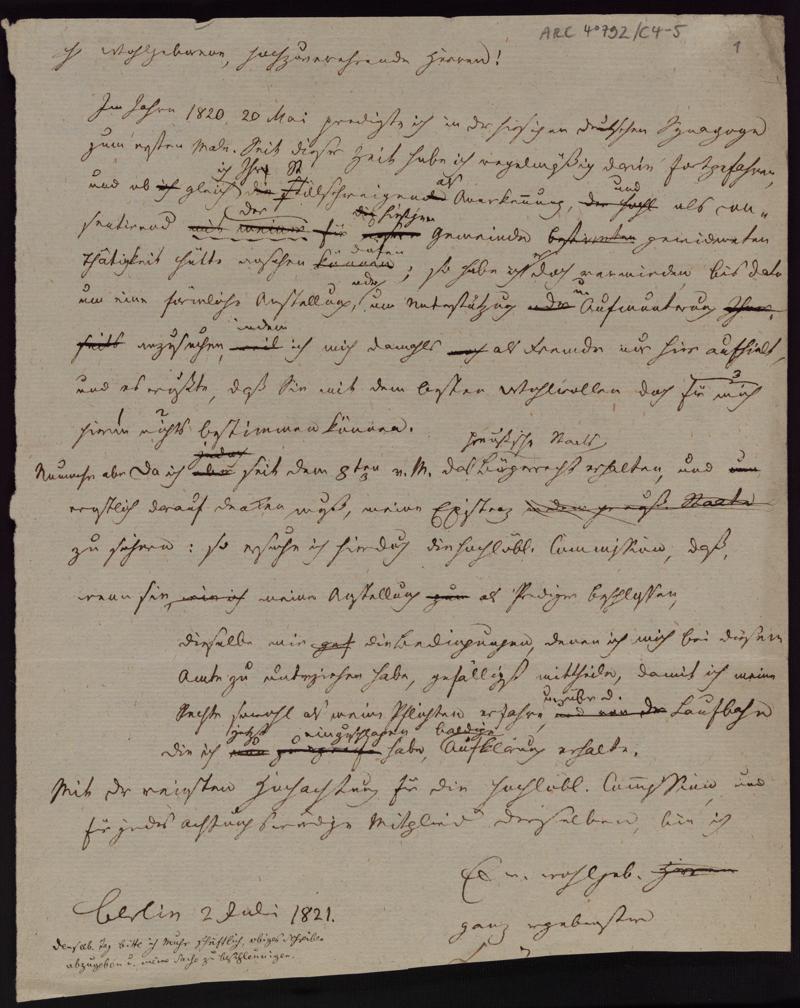 ARC 4° 792/C4-5
1
Wohlgeborene, hochzuverehrende Herren!
Im Jahre 1820 20 Mai predigte ich in der hiesigen deutschen Synagoge
zum ersten Male. Seit dieser Zeit habe ich regelmäßig darin fortgefahren,
und ob ich gleich Ihre Stillschweigen als Anerkennung, und als con-
sentirend der für die hiesige Gemeinde gewidmeten
Thätigkeit hätte ansehen dürfen; so habe ich es doch vermieden, bis dato
um eine förmliche Anstellung, oder um Unterstützung u. Aufmunterung
anzusuchen, indem ich mich damals als Fremder nur hier aufhielt,
und es wußte, daß Sie mit dem besten Wohlwollen doch für mich
hierin nichts bestimmen können.
Nunmehr aber da ich seit dem 8ten v. M. das preußische Staats
Bürgerrecht erhalten, und
ernstlich darauf denken muß, meine Existenz
zu sichern: so ersuche ich hierdurch die hochlöbl. Commission, daß,
wenn sie meine Anstellung als Prediger beschlossen,
dieselbe mir die Bedingungen, denen ich mich bei diesem
Amte zu unterziehen habe, gefälligst mittheile, damit ich meine
Rechte sowohl als meine Pflichten erfahre, und über d. Laufbahn
die ich jetzt einzuschlagen habe, baldige Aufklärung erhalte.
Mit der reinsten Hochachtung für die hochlöbl. Commission, und
für jedes achtungswürdige Mitglied derselben, bin ich
Ew. wohlgeb.
ganz ergebenster
Berlin 2 Juli 1821.
denselb. Tag bitte ich, obiges Schreiben
abzugeben u. meine Sache zu beschleunigen.